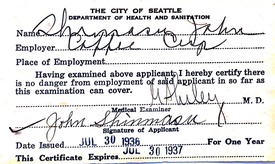 THE CITY OF SEATTLE
DEPARTMENT OF HEALTH AND SANITATION
Name Shinmasu, John
Employer Coffee Cup
Place of Employment
Having examined above applicant I hereby certify there
is no danger from employment of said applicant in so far as
this examination can cover.
M. D.
Medical Examiner
John Shinmasu
Signature of Applicant
Date Issued JUL 30 1936 For One Year
This Certificate Expires JUL 30 1937